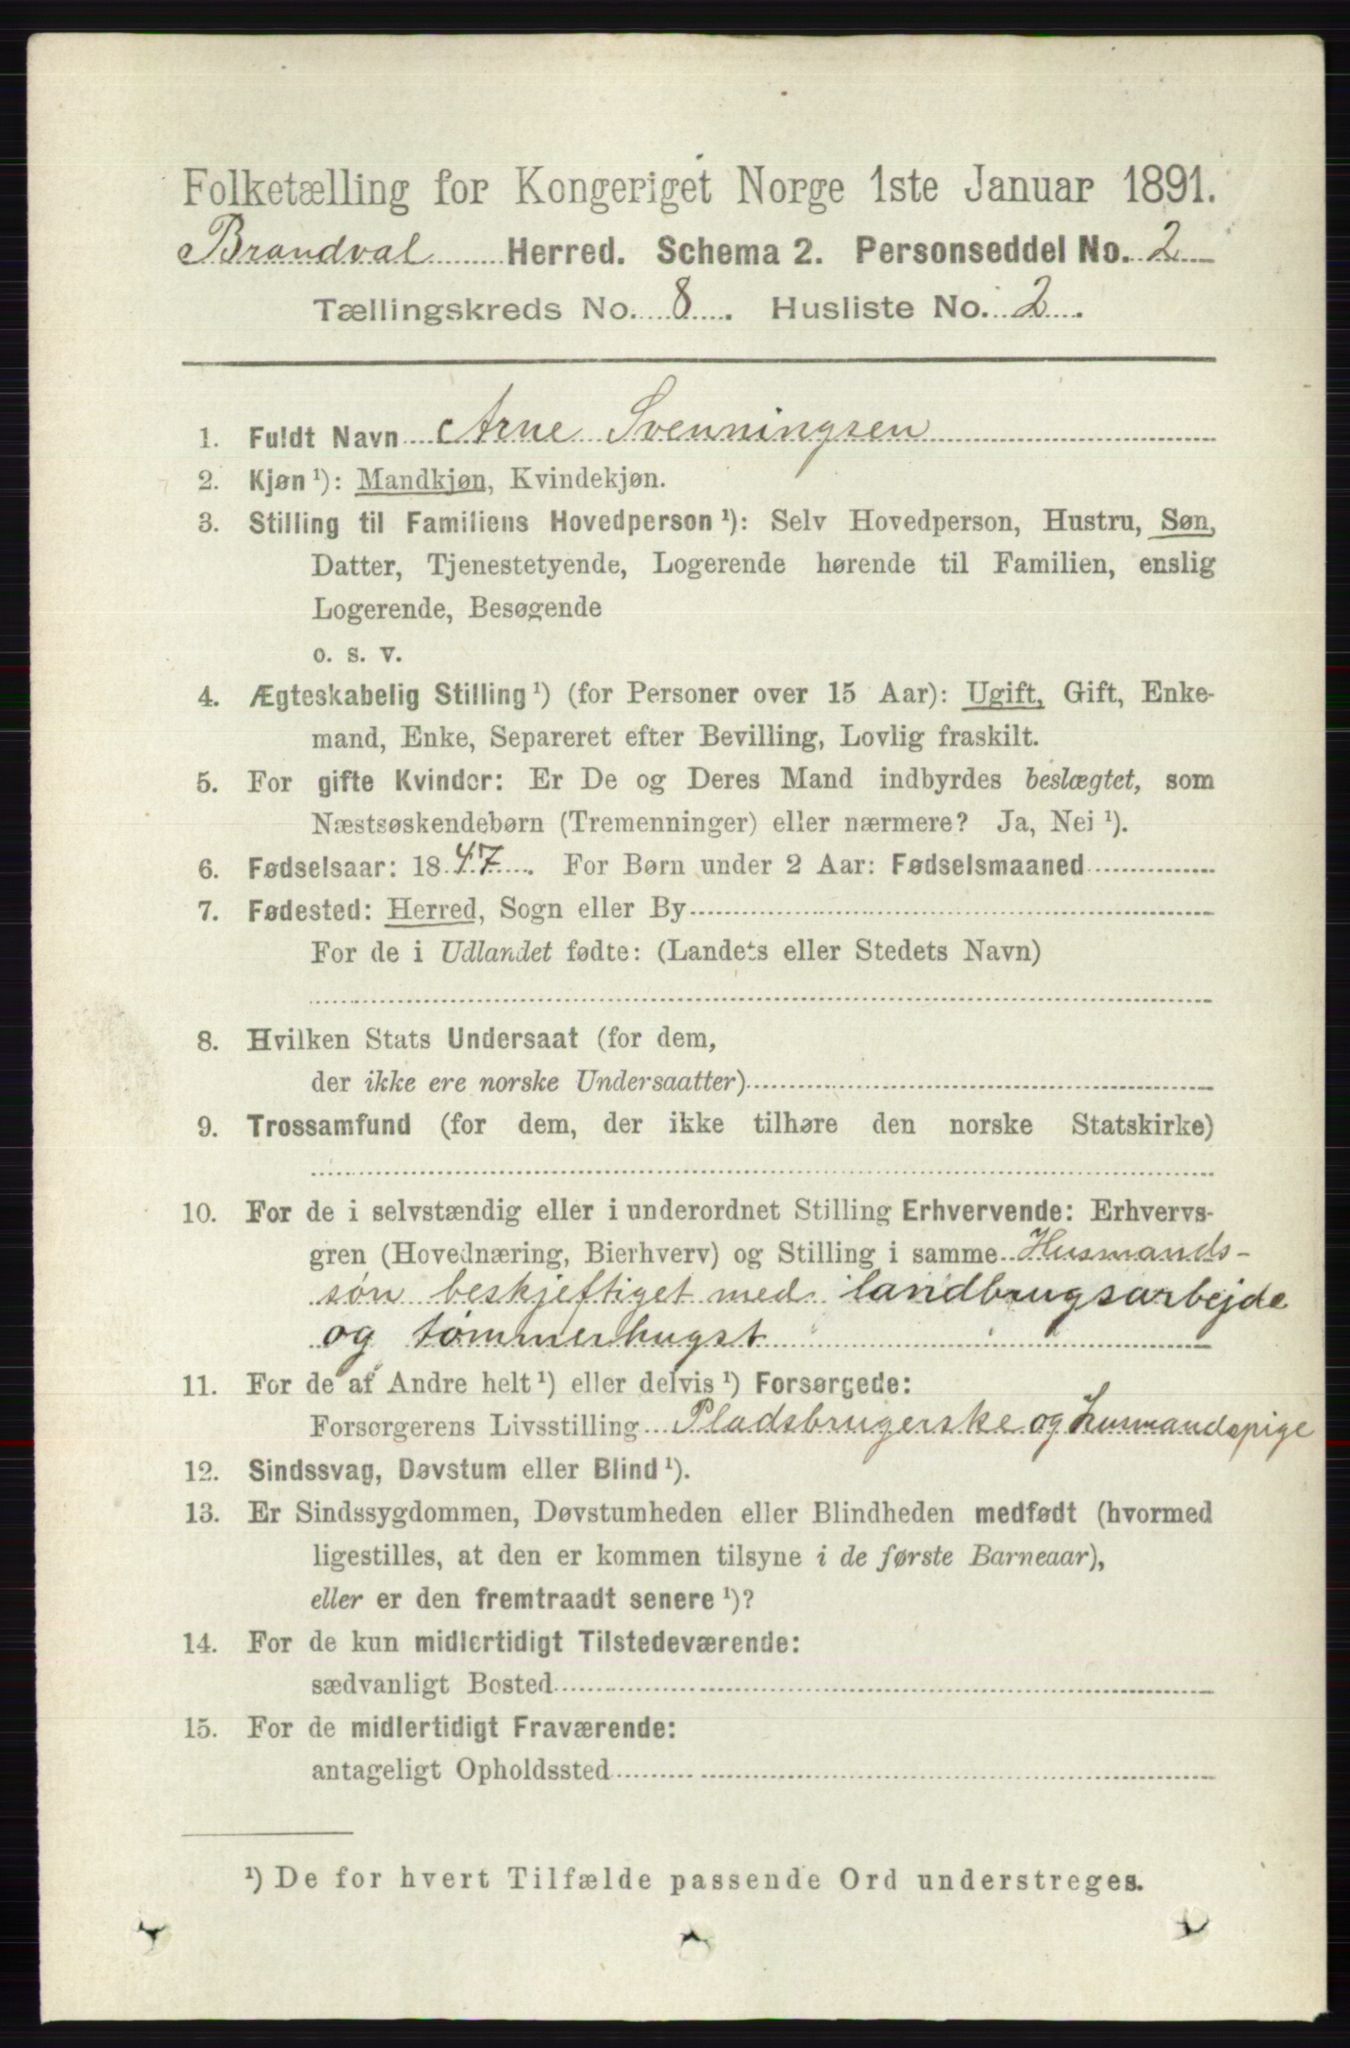 Folketælling for Kongeriget Norge 1ste Januar 1891.
Brandval Herred. Schema 2. Personseddel No. 2
Tællingskreds No. 8. Husliste No. 2.
1. Fuldt Navn Arne Svenningsen
2. Kjøn ¹): Mandkjøn, Kvindekjøn.
3. Stilling til Familiens Hovedperson ¹): Selv Hovedperson, Hustru, Søn,
Datter, Tjenestetyende, Logerende hørende til Familien, enslig
Logerende, Besøgende
o. s. v.
4. Ægteskabelig Stilling ¹) (for Personer over 15 Aar): Ugift, Gift, Enke-
mand, Enke, Separeret efter Bevilling, Lovlig fraskilt.
5. For gifte Kvinder: Er De og Deres Mand indbyrdes beslægtet, som
Næstsøskendebørn (Tremenninger) eller nærmere? Ja, Nei ¹).
6. Fødselsaar: 1847. For Børn under 2 Aar: Fødselsmaaned
7. Fødested: Herred, Sogn eller By
For de i Udlandet fødte: (Landets eller Stedets Navn)
8. Hvilken Stats Undersaat (for dem,
der ikke ere norske Undersaatter)
9. Trossamfund (for dem, der ikke tilhøre den norske Statskirke)
10. For de i selvstændig eller i underordnet Stilling Erhvervende: Erhvervs-
gren (Hovednæring, Bierhverv) og Stilling i samme Husmands-
søn beskjeftiget med landbrugsarbejde
og tømmerhugst
11. For de af Andre helt ¹) eller delvis ¹) Forsørgede:
Forsørgerens Livsstilling Pladsbrugerske og husmandspige
12. Sindssvag, Døvstum eller Blind ¹).
13. Er Sindssygdommen, Døvstumheden eller Blindheden medfødt (hvormed
ligestilles, at den er kommen tilsyne i de første Barneaar),
eller er den fremtraadt senere ¹)?
14. For de kun midlertidigt Tilstedeværende:
sædvanligt Bosted
15. For de midlertidigt Fraværende:
antageligt Opholdssted
¹) De for hvert Tilfælde passende Ord understreges.